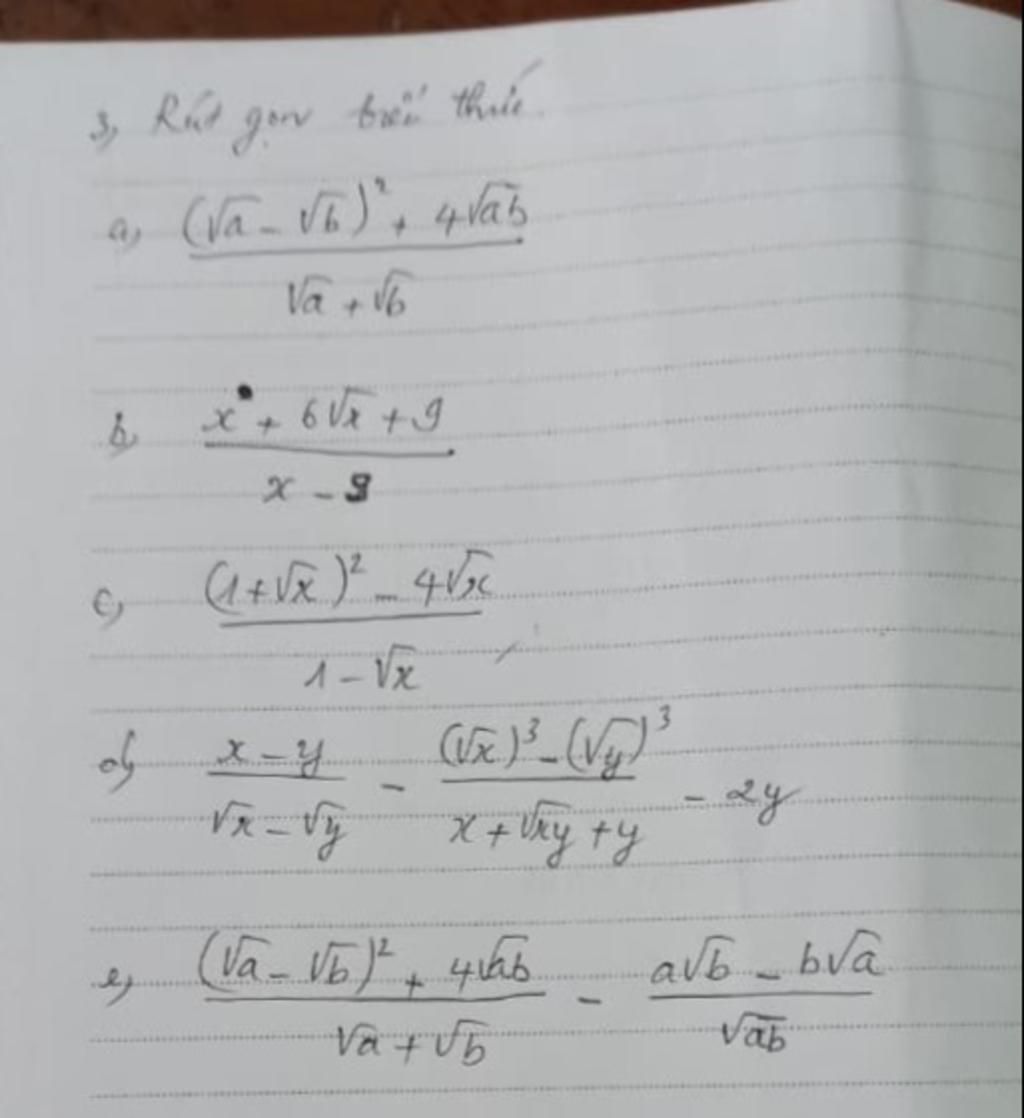 3, Rút gọn biểu thức.
a, ((√a - √b)² + 4√ab) / (√a + √b)
b, (x + 6√x + 9) / (x - 9)
c, ((1 + √x)² - 4√x) / (1 - √x)
d, (x - y) / (√x - √y) - ((√x)³ - (√y)³) / (x + √xy + y) - 2y
e, ((√a - √b)² + 4√ab) / (√a + √b) - (a√b - b√a) / √ab